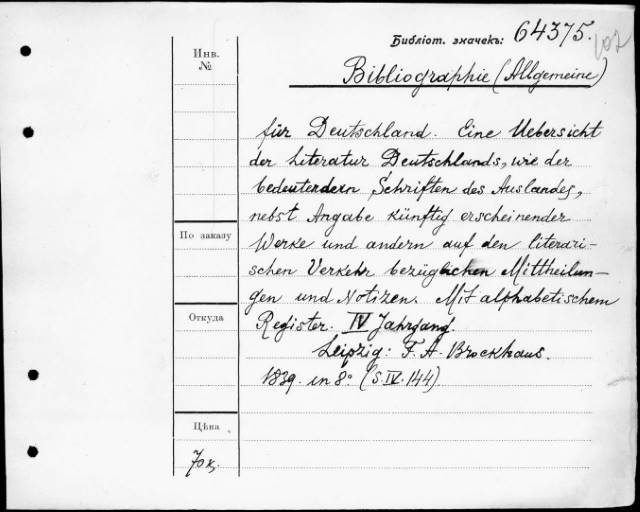 Библіот. значекъ: 64375.
102
Инв.
№
Bibliographie (Allgemeine)
für Deutschland. Eine Uebersicht
der Literatur Deutschlands, wie der
bedeutendern Schriften des Auslandes,
nebst Angabe künftig erscheinender
По заказу
Werke und andern auf den literari-
schen Verkehr bezüglichen Mittheilun-
gen und Notizen. Mit alphabetischem
Откуда
Register. IV Jahrgang.
Leipzig: F. A. Brockhaus.
1839. in 8° (S. IV. 144)
Цѣна
70 к.